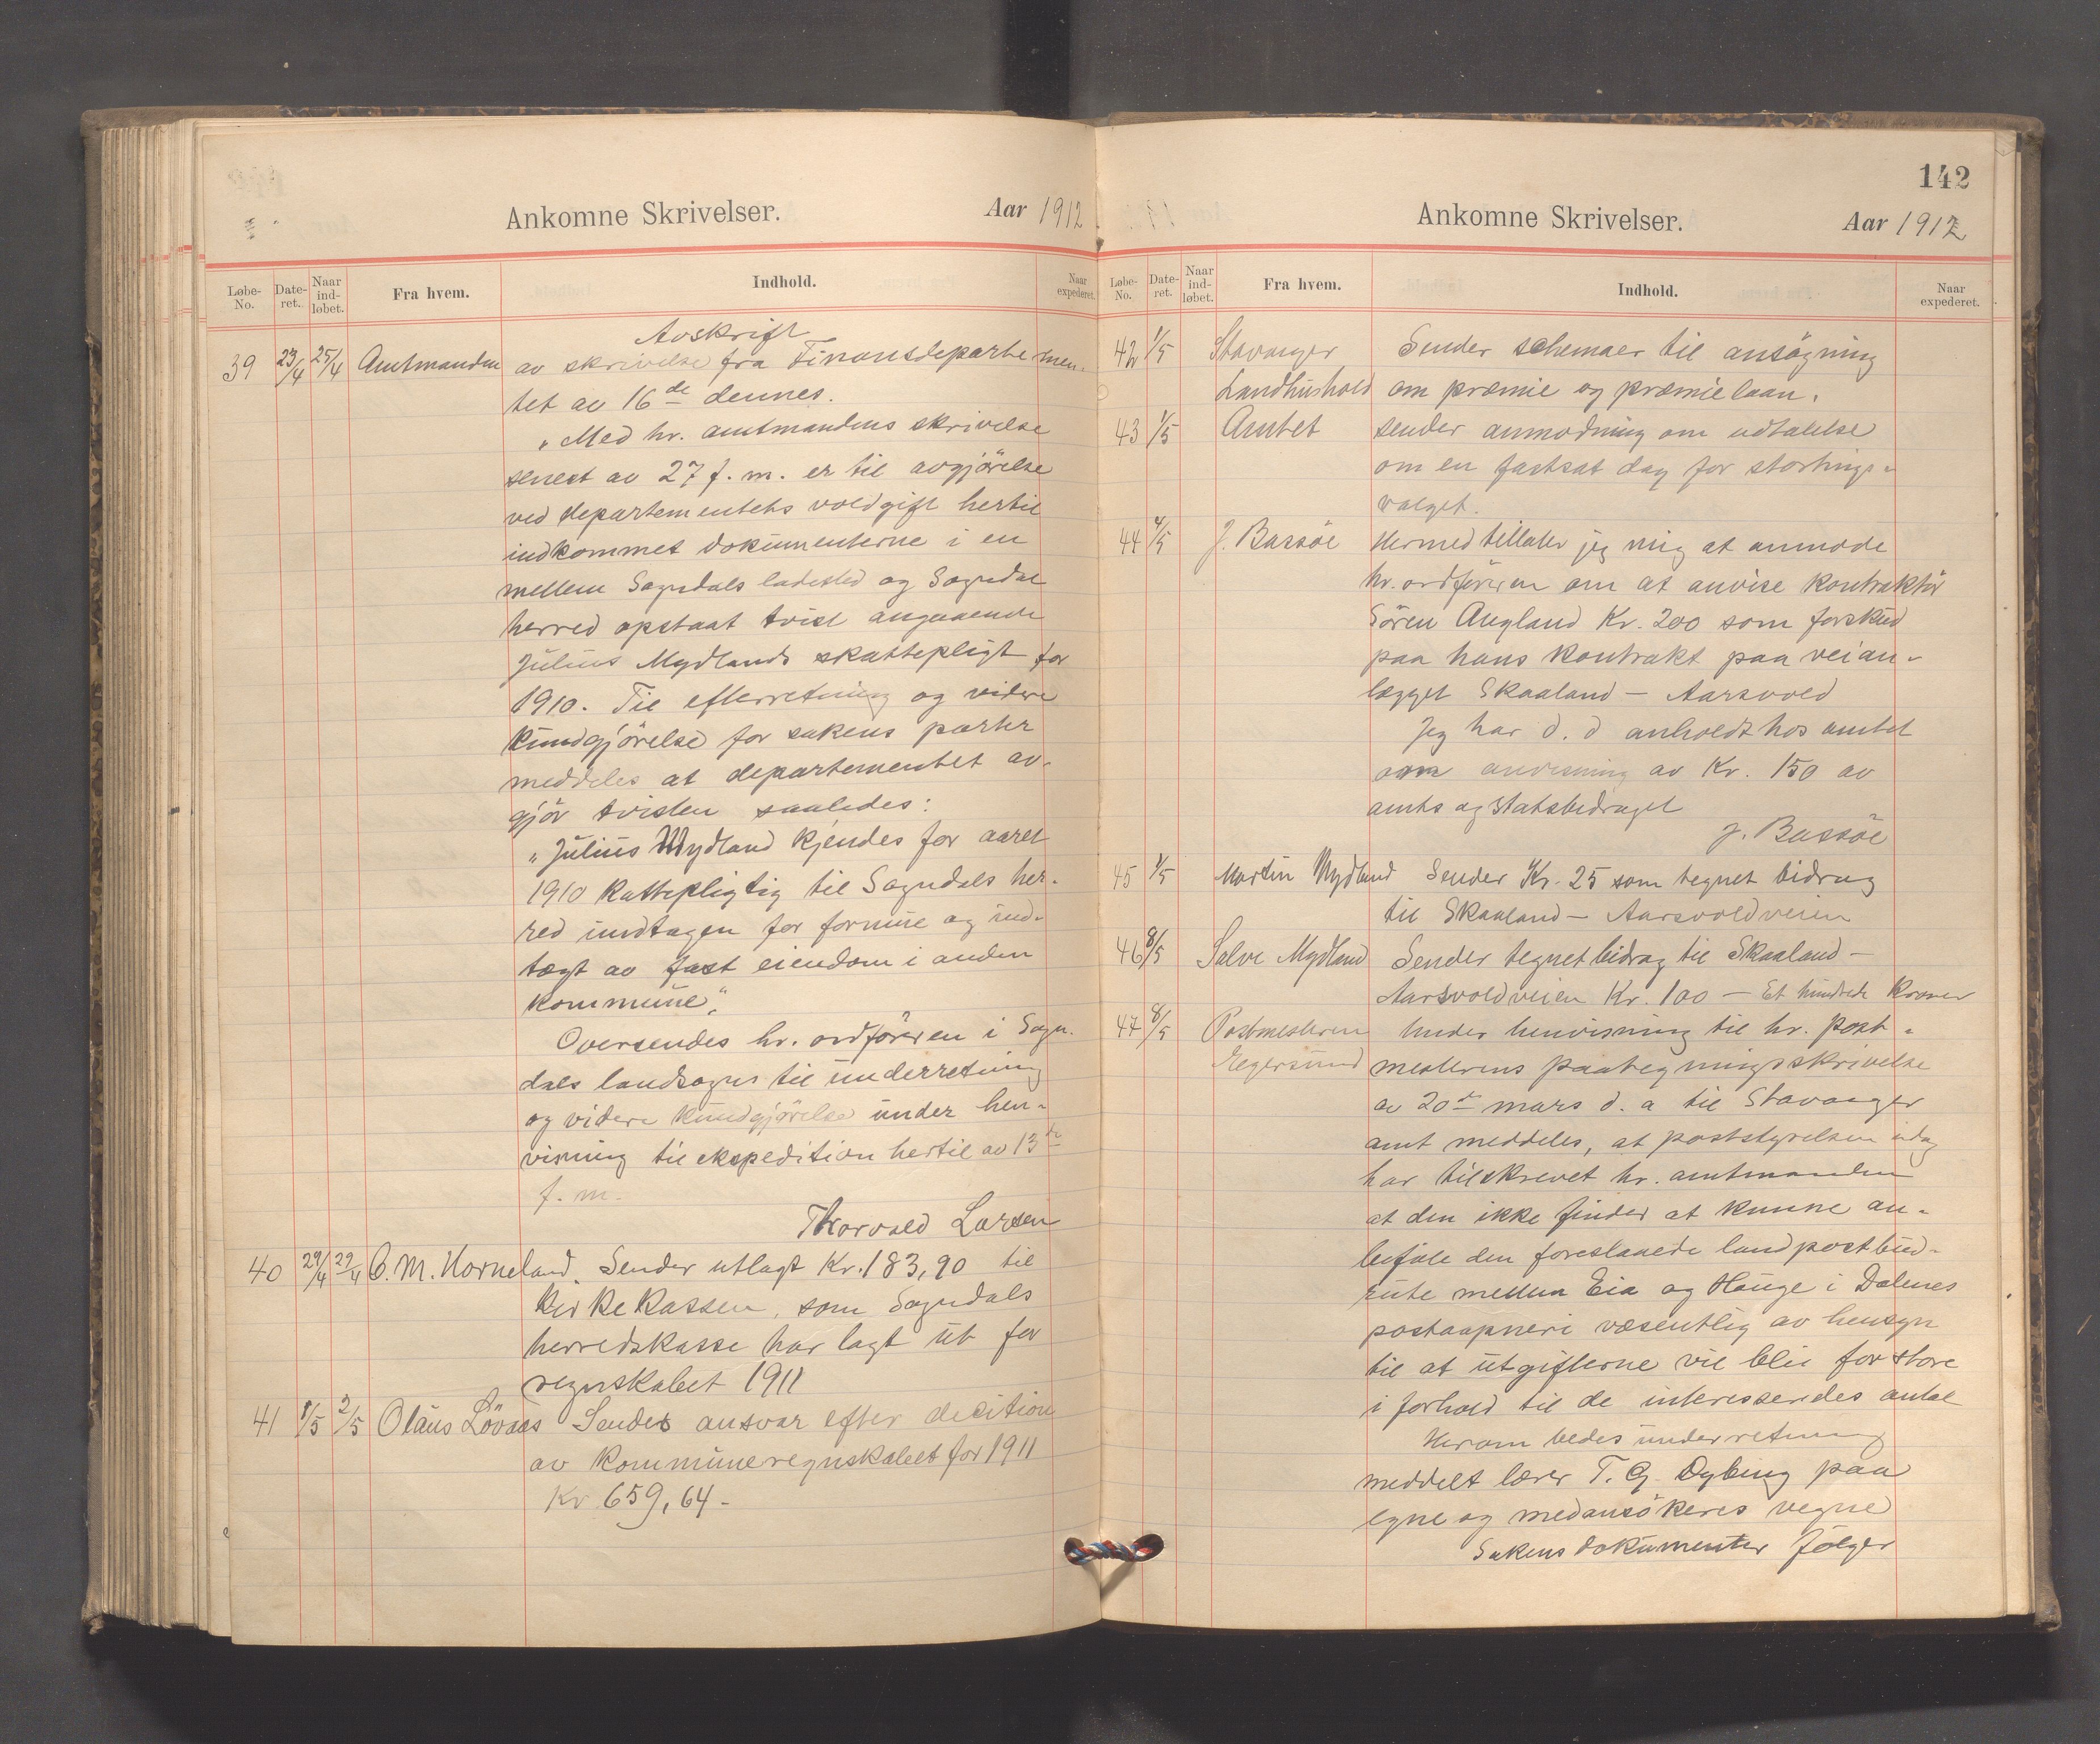 Ankomne Skrivelser. Aar 1912
Løbe-No. Date-ret. Naar ind-løbet. Fra hvem. Indhold. Naar expederet.
Avskrift
39 23/4 25/4 Amtmanden av skrivelse fra Finansdepartemen-
tet av 16de dennes.
"Med hr. amtmandens skrivelse
senest av 27 f. m. er til avgjörelse
ved departementets voldgift hertil
indkommet dokumenterne i en
mellem Sogndals ladested og Sogndal
herred opstaat tvist angaaende
Julius Mydlands skattepligt for
1910. Til efterretning og videre
kundgjörelse for sakens parter
meddeles at departementet av-
gjör tvisten saaledes:
"Julius Mydland kjendes for aaret
1910 kattepligtig til Sogndals her-
red undtagen for formue og ind-
tægt av fast eiendom i anden
kommune".
Oversendes hr. ordföreren i Sogn-
dals landsogn til underretning
og videre kundgjörelse under hen-
visning til ekspedition hertil av 13de
f. m.
Thorvald Larsen
40 29/4 29/4 C. M. Horneland. Sender utlagt Kr. 183,90 til
Kirkekassen, som Sogndals
herredskasse har lagt ut for
regnskabet 1911
41 1/5 2/5 Olaus Lövaas Sender ansvar efter decition
av kommuneregnskabet for 1911
Kr 659,64-
142
Ankomne Skrivelser. Aar 1912
Løbe-No. Date-ret. Naar ind-løbet. Fra hvem. Indhold. Naar expederet.
42 1/5 Stavanger Sender schemaer til ansögning
Landhushold om præmie og præmielaan.
43 1/5 Amtet sender anmodning om udtalelse
om en fastsat dag for stortings-
valget.
44 4/5 J. Bassöe Hermed tillater jeg mig at anmode
hr. ordföreren om at anvise kontraktör
Sören Augland Kr. 200 som forskud
paa hans kontrakt paa veian-
lægget Skaaland – Aarsvold
Jeg har d. d anholdt hos amtet
om anvisning av Kr. 150 av
amts og statsbidraget
J. Bassöe
45 1/5 Martin Mydland Sender Kr. 25 som tegnet bidrag
til Skaaland – Aarsvoldveien
46 8/5 Salve Mydland Sender tegnet bidrag til Skaaland –
Aarsvoldveien Kr. 100 – Et hundrede kroner
47 8/5 Postmesteren Under henvisning til hr. post-
Egersund mesterens paategningsskrivelse
av 20de mars d. a til Stavanger
amt meddeles, at poststyrelsen idag
har tilskrevet hr. amtmanden
at den ikke finder at kunne an-
befale den foreslaaede landpostbud-
rute mellem Eia og Hauge i Dalenes
postaapneri væsentlig av hensyn
til at utgifterne vil bli for store
i forhold til de interesserides antal
Herom bedes underretning
meddelt lærer T. G. Dybing paa
egne og medansökeres vegne
Sakens dokumenter fölger